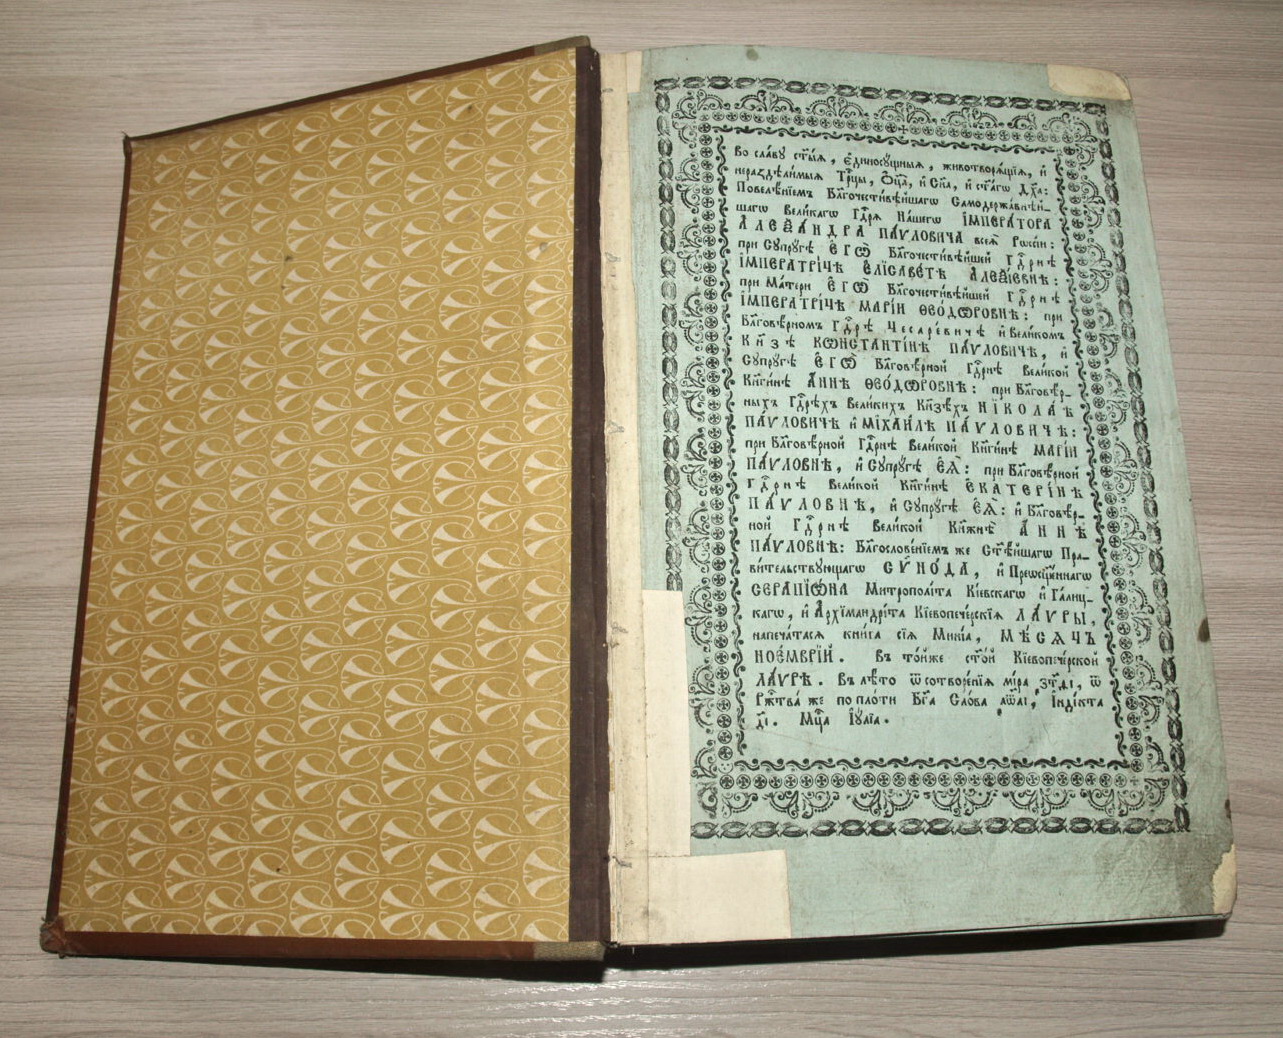 Во сла́вꙋ ст҃ы́ѧ, є҆диносꙋ́щныѧ, животворѧ́щїѧ, и҆
нераздѣли́мыѧ Трⷪ҇цы, Ѻ҆ц҃а̀, и҆ Сн҃а, и҆ ст҃а́гѡ Дх҃а:
Повелѣ́нїемъ Бл҃гочести́вѣйшагѡ Самодержа́внѣй-
шагѡ Вели́кагѡ Гдⷭ҇рѧ На́шегѡ І҆МПЕРА́ТОРА
А҆ЛЕѮА́НДРА ПА́ѴЛОВИЧА всеѧ̀ Рѡссі́и:
при Сꙋпрꙋ́гѣ Є҆ГѠ̀ Бл҃гочести́вѣйшей Гдⷭ҇рнѣ
І҆МПЕРАТРІ́ЧѢ Є҆ЛІСАВЕ́ТѢ А҆ЛЕѮІ́ЕВНѢ:
при Ма́тери Є҆ГѠ̀ Бл҃гочести́вѣйшей Гдⷭ҇рнѣ
І҆МПЕРАТРІ́ЧѢ МАРІ́И ѲЕО́ДѠРОВНѢ: при
Бл҃говѣ́рномъ Гдⷭ҇рѣ ЧЕСАРЕ́ВИЧѢ и҆ Вели́комъ
КН҃ЗѢ КѠНСТАНТІ́НѢ ПА́ѴЛОВИЧѢ, и҆
Сꙋпрꙋ́гѣ Є҆ГѠ̀ Бл҃говѣ́рной Гдⷭ҇рнѣ Вели́кой
Кнг҃и́нѣ А҆́ННѢ ѲЕО́ДѠРОВНѢ: при Бл҃говѣ́р-
ныхъ Гдⷭ҇рехъ Вели́кихъ Кнѕ҃ехъ НІКОЛА́Ѣ
ПА́ѴЛОВИЧѢ и҆ МІХАИ́ЛѢ ПА́ѴЛОВИЧѢ:
при Бл҃говѣ́рной Гдⷭ҇рнѣ Вели́кой Кнг҃и́нѣ МАРІ́И
ПА́ѴЛОВНѢ, и҆ Сꙋпрꙋ́гѣ Є҆Ѧ̀: при Бл҃говѣ́рной
Гдⷭ҇рнѣ Вели́кой Кнг҃и́нѣ Є҆КАТЕРІ́НѢ
ПА́ѴЛОВНѢ, и҆ Сꙋпрꙋ́гѣ Є҆Ѧ̀: и҆ Бл҃говѣ́р-
ной Гдⷭ҇рнѣ Вели́кой Кн҃жнѣ А҆́ННѢ
ПА́ѴЛОВНѢ: Бл҃гослове́нїемъ же Ст҃ѣ́йшагѡ Пра-
ви́тельствꙋющагѡ СѴНО́ДА, и҆ Преѡсщ҃е́ннагѡ
СЕРАПІѠ́НА Митрополі́та Кі́евскагѡ и҆ Га́лиц-
кагѡ, и҆ А҆рхїмандрі́та Кїевопече́рскїѧ ЛА́ѴРЫ,
напеча́тасѧ кни́га сїѧ̀ Мині́а, МѢ́СѦЧЪ
НОЕ́МВРІЙ. Въ то́йже ст҃о́й Кїевопече́рской
ЛА́ѴРѢ. Въ лѣ́то ѿ сотворе́нїѧ мі́ра, ҂зт҃ді, ѿ
Ржⷭ҇тва́ же по пло́ти Бг҃а Сло́ва ҂аѡ҃аі, І҆нді́кта
д҃і. Мцⷭ҇а І҆ꙋ́лїа.